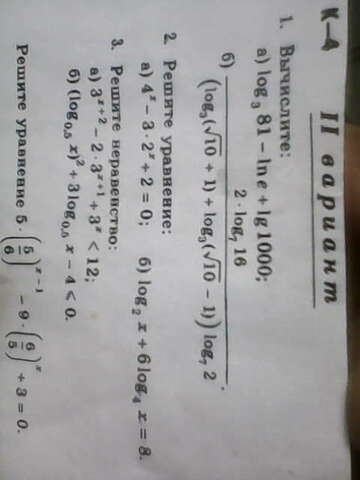 К–4 II вариант
1. Вычислите:
а) log₃ 81 – ln e + lg 1000;
б) (log₃(√10 + 1) + log₃(√10 – 1)) log₇ 2 / 2 · log₇ 16.
2. Решите уравнение:
а) 4ˣ – 3 · 2ˣ + 2 = 0; б) log₂ x + 6 log₄ x = 8.
3. Решите неравенство:
а) 3ˣ⁺² – 2 · 3ˣ⁺¹ + 3ˣ < 12;
б) (log₀,₅ x)² + 3 log₀,₅ x – 4 ⩽ 0.
Решите уравнение 5 · (5/6)ˣ⁻¹ – 9 · (6/5)ˣ + 3 = 0.